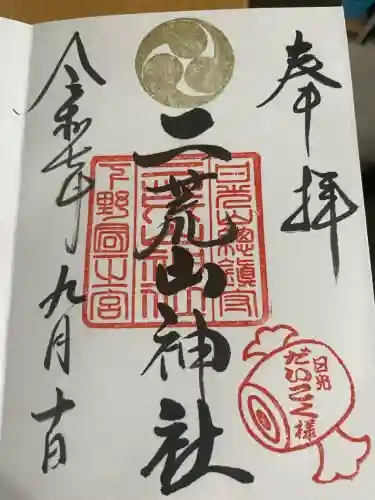 奉拝
二荒山神社
下野國一之宮
二荒山神社
日光總鎮守
日光
だいこく様
令和七年九月十日